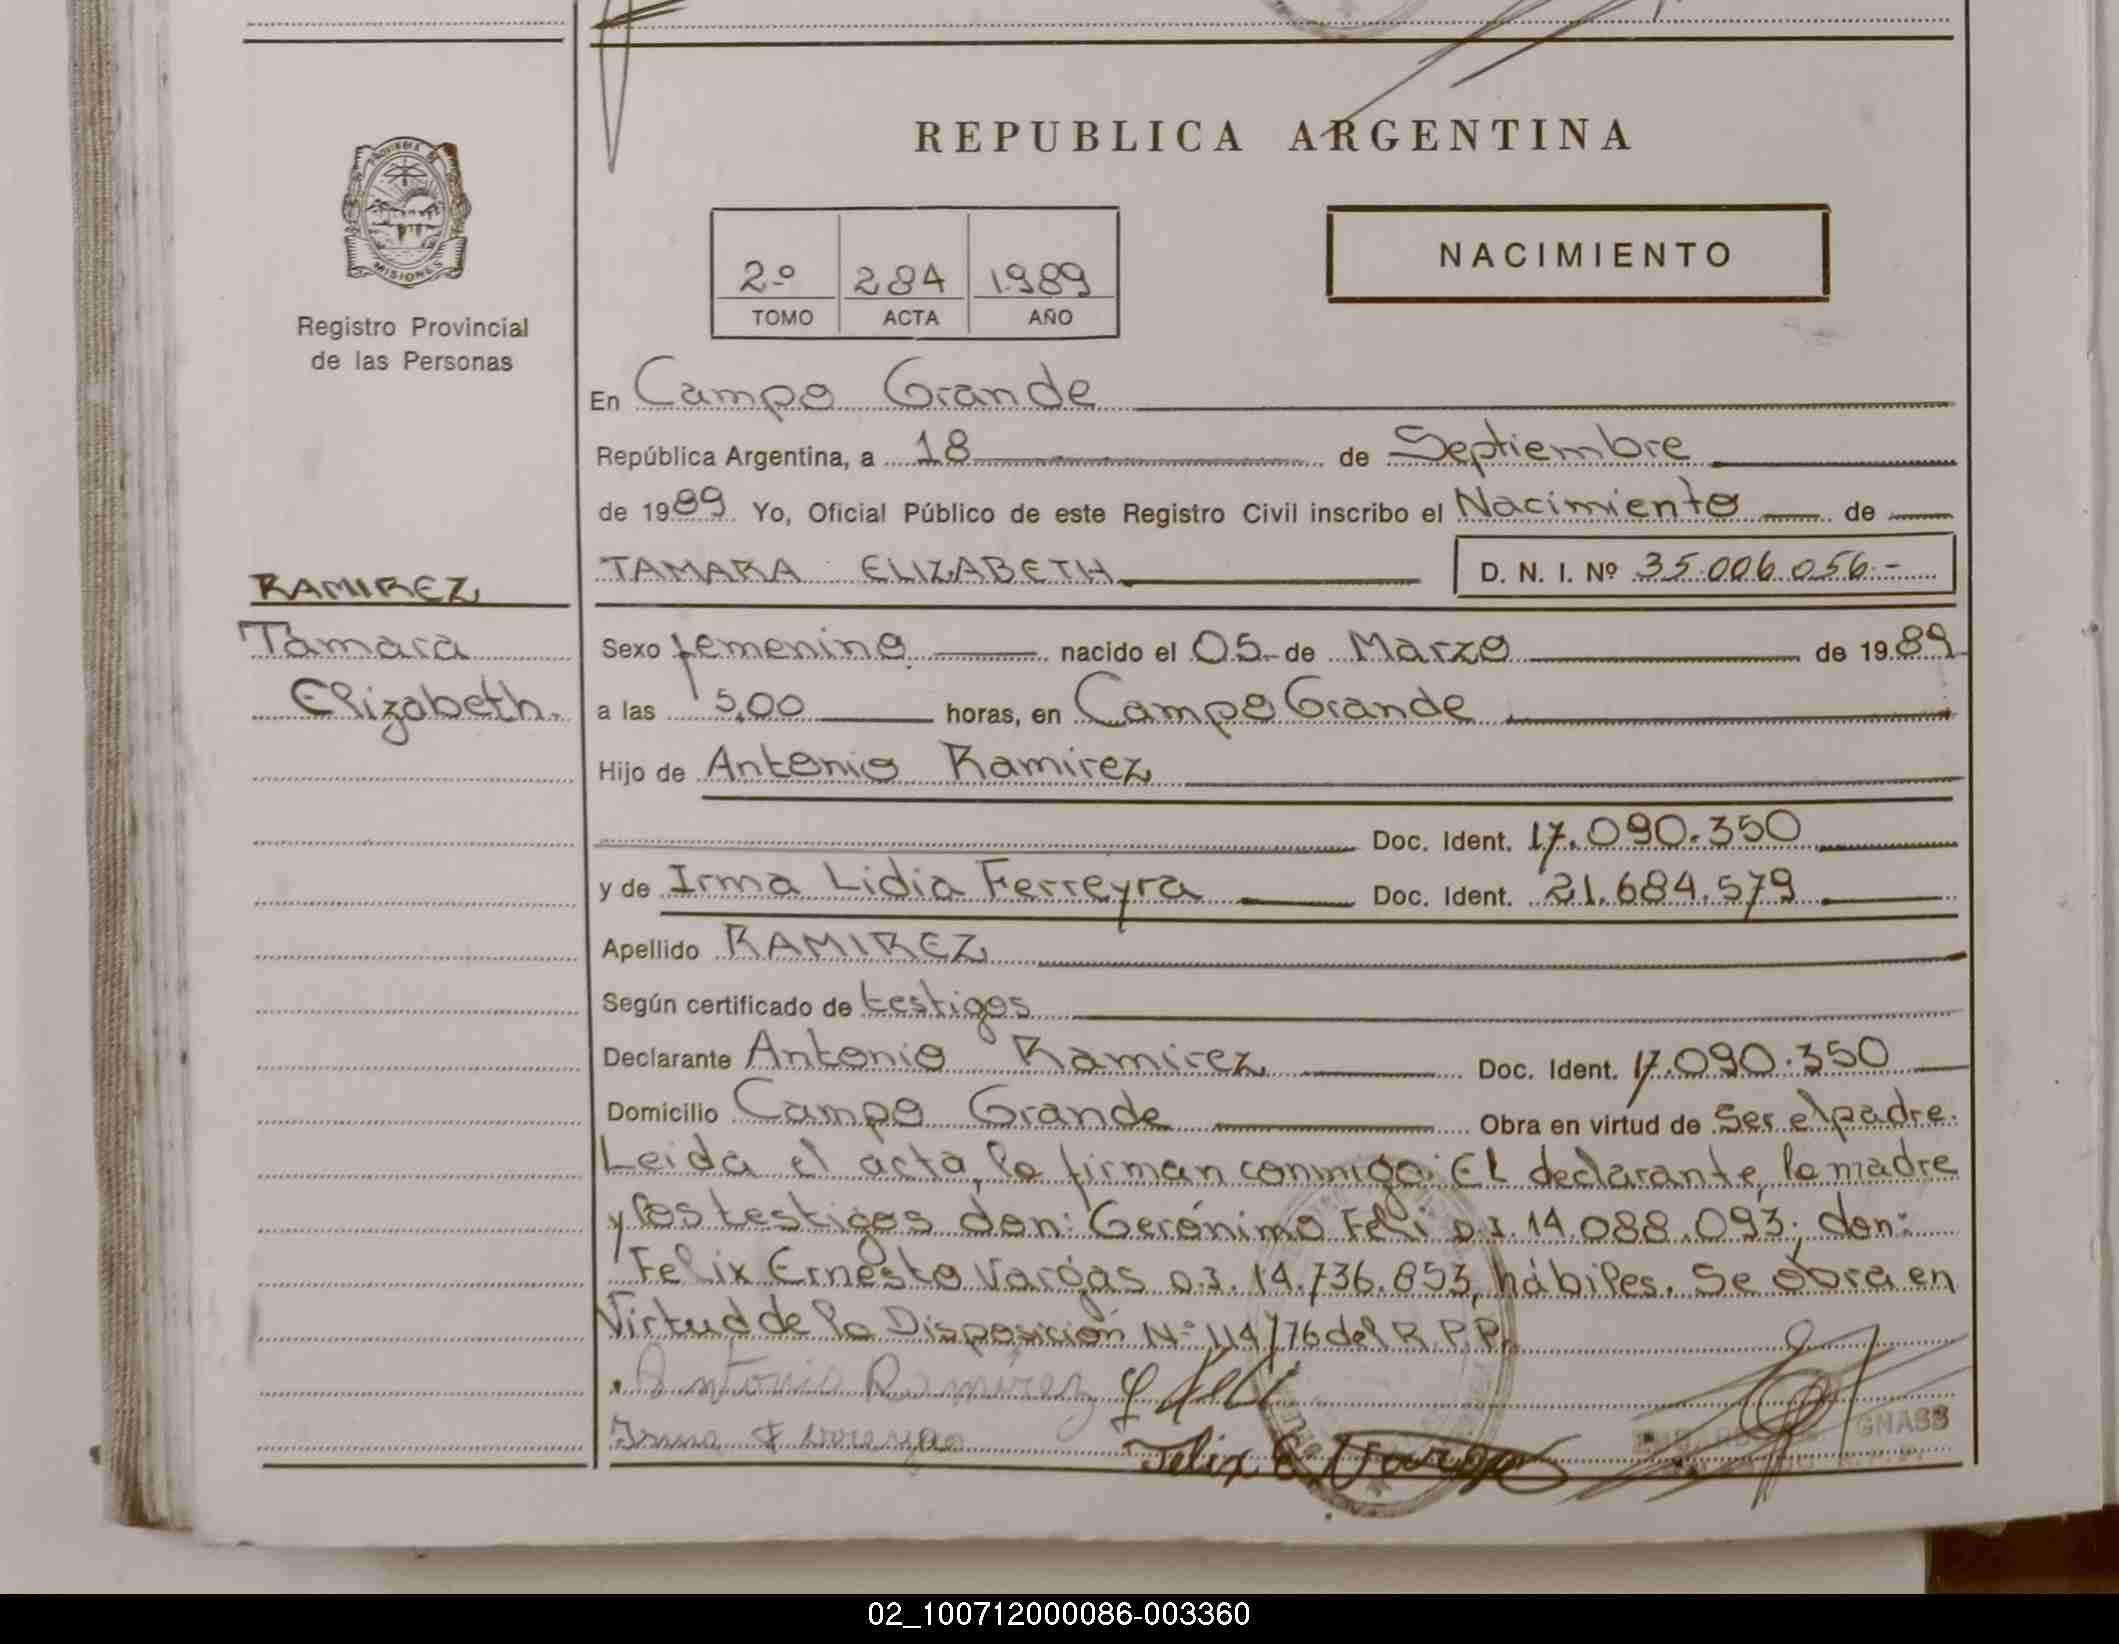 REPUBLICA ARGENTINA
PROVINCIA DE
MISIONES
Registro Provincial
de las Personas
2º 284 1989
TOMO ACTA AÑO
NACIMIENTO
En Campo Grande
República Argentina, a 18 de Septiembre
de 1989 Yo, Oficial Público de este Registro Civil inscribo el Nacimiento de
TAMARA ELIZABETH D. N. I. Nº 35.006.056.-
RAMIREZ
Tamara
Elizabeth.
Sexo femenino nacido el 05 de Marzo de 1989
a las 5,00 horas, en Campo Grande
Hijo de Antonio Ramirez
Doc. Ident. 17.090.350
y de Irma Lidia Ferreyra Doc. Ident. 21.684.579
Apellido RAMIREZ
Según certificado de testigos
Declarante Antonio Ramirez Doc. Ident. 17.090.350
Domicilio Campo Grande Obra en virtud de Ser el padre.
Leida el acta, la firman conmigo: El declarante, la madre
y los testigos don: Gerónimo Feli D.I. 14.088.093; don:
Felix Ernesto Vargas D.I. 14.736.853, hábiles. Se obra en
Virtud de la Disposición Nº 114/76 del R.P.P.
Antonio Ramirez Feli
Irma
Felix E Vargas
GNASS
02_100712000086-003360